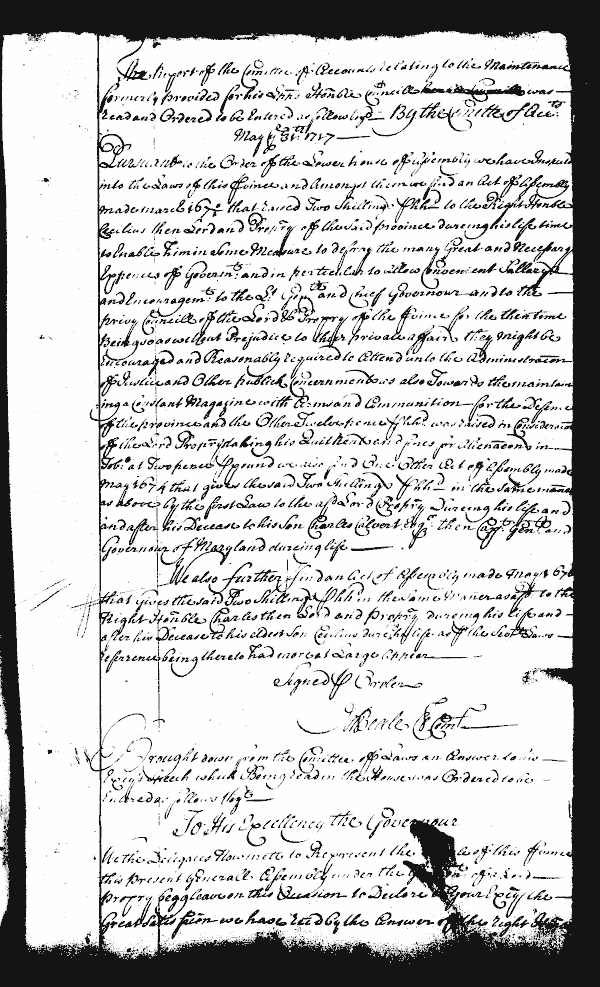 The Report off the Comittee off Accounts relating to the Maintenance
formerly provided for his Honble Councill was
read and Ordered to be Entered as followeth By the Comittee of Acc:ts
May 31th 1717
Pursuant to the Order of the Lower house off Assembly we have
into the Laws of this and Amongst them we find an Act of Assembly
made march that raised Two Shillings hhd to the Right Honble
Cecilius then Lord and Propry off the said province dureing his life time
to Enable him in Some Measure to defray the many Great and Necessary
Expences off Governmt and in perticular to allow convenient Sallarys
and Encouragemts to the Lt Govr and Cheif Governour and to the
privy Councill off the Lord Propry off the for the then time
Being so as without Prejudice to their private affairs they might be
Encouraged and Reasonably required to Attend unto the Administracon
off Justice and Other publick Concernments as also Towards the maintain
ing a Constant Magazine with Arms and Ammunition for the Defence
off the province and the Other Twelve pence hhd was raised in Consideracon
off the Lord Proprys taking his Quitt Rents and fines for Alienacons in
Tobco at Two pence pound we also find One Other Act off Assembly made
May 1674 that gives the said Two Shillings hhd in the Same manner
as above by the first Law to the Lord Propry Dureing his life and
and after his Decease to his Son Charles Calvert Esqr then Capt Genl and
Governour of Maryland dureing life
We also further find an Act of Assembly made May 1676
that gives the said Two Shillings hhd in the Same Maner as to the
Right Honble Charles then Lord and Propry dureing his life and
after his Decease to his eldest Son Cecilius dureing life as off the Laws
reference being thereto had more at Large Appear
Signed Order
Beale Comt
Brought down from the Comittee off Laws an Answer to his
Excys speech which Being read in the House was Ordered to be
Entered as follows
To His Excellency the Governour
We the Delegates Now mett to Represent the of this
this present Generall Assembly under the of Lord
Propry begg leave on this Occasion to Declare to Your Excy the
Great we have by the Answer of the Right